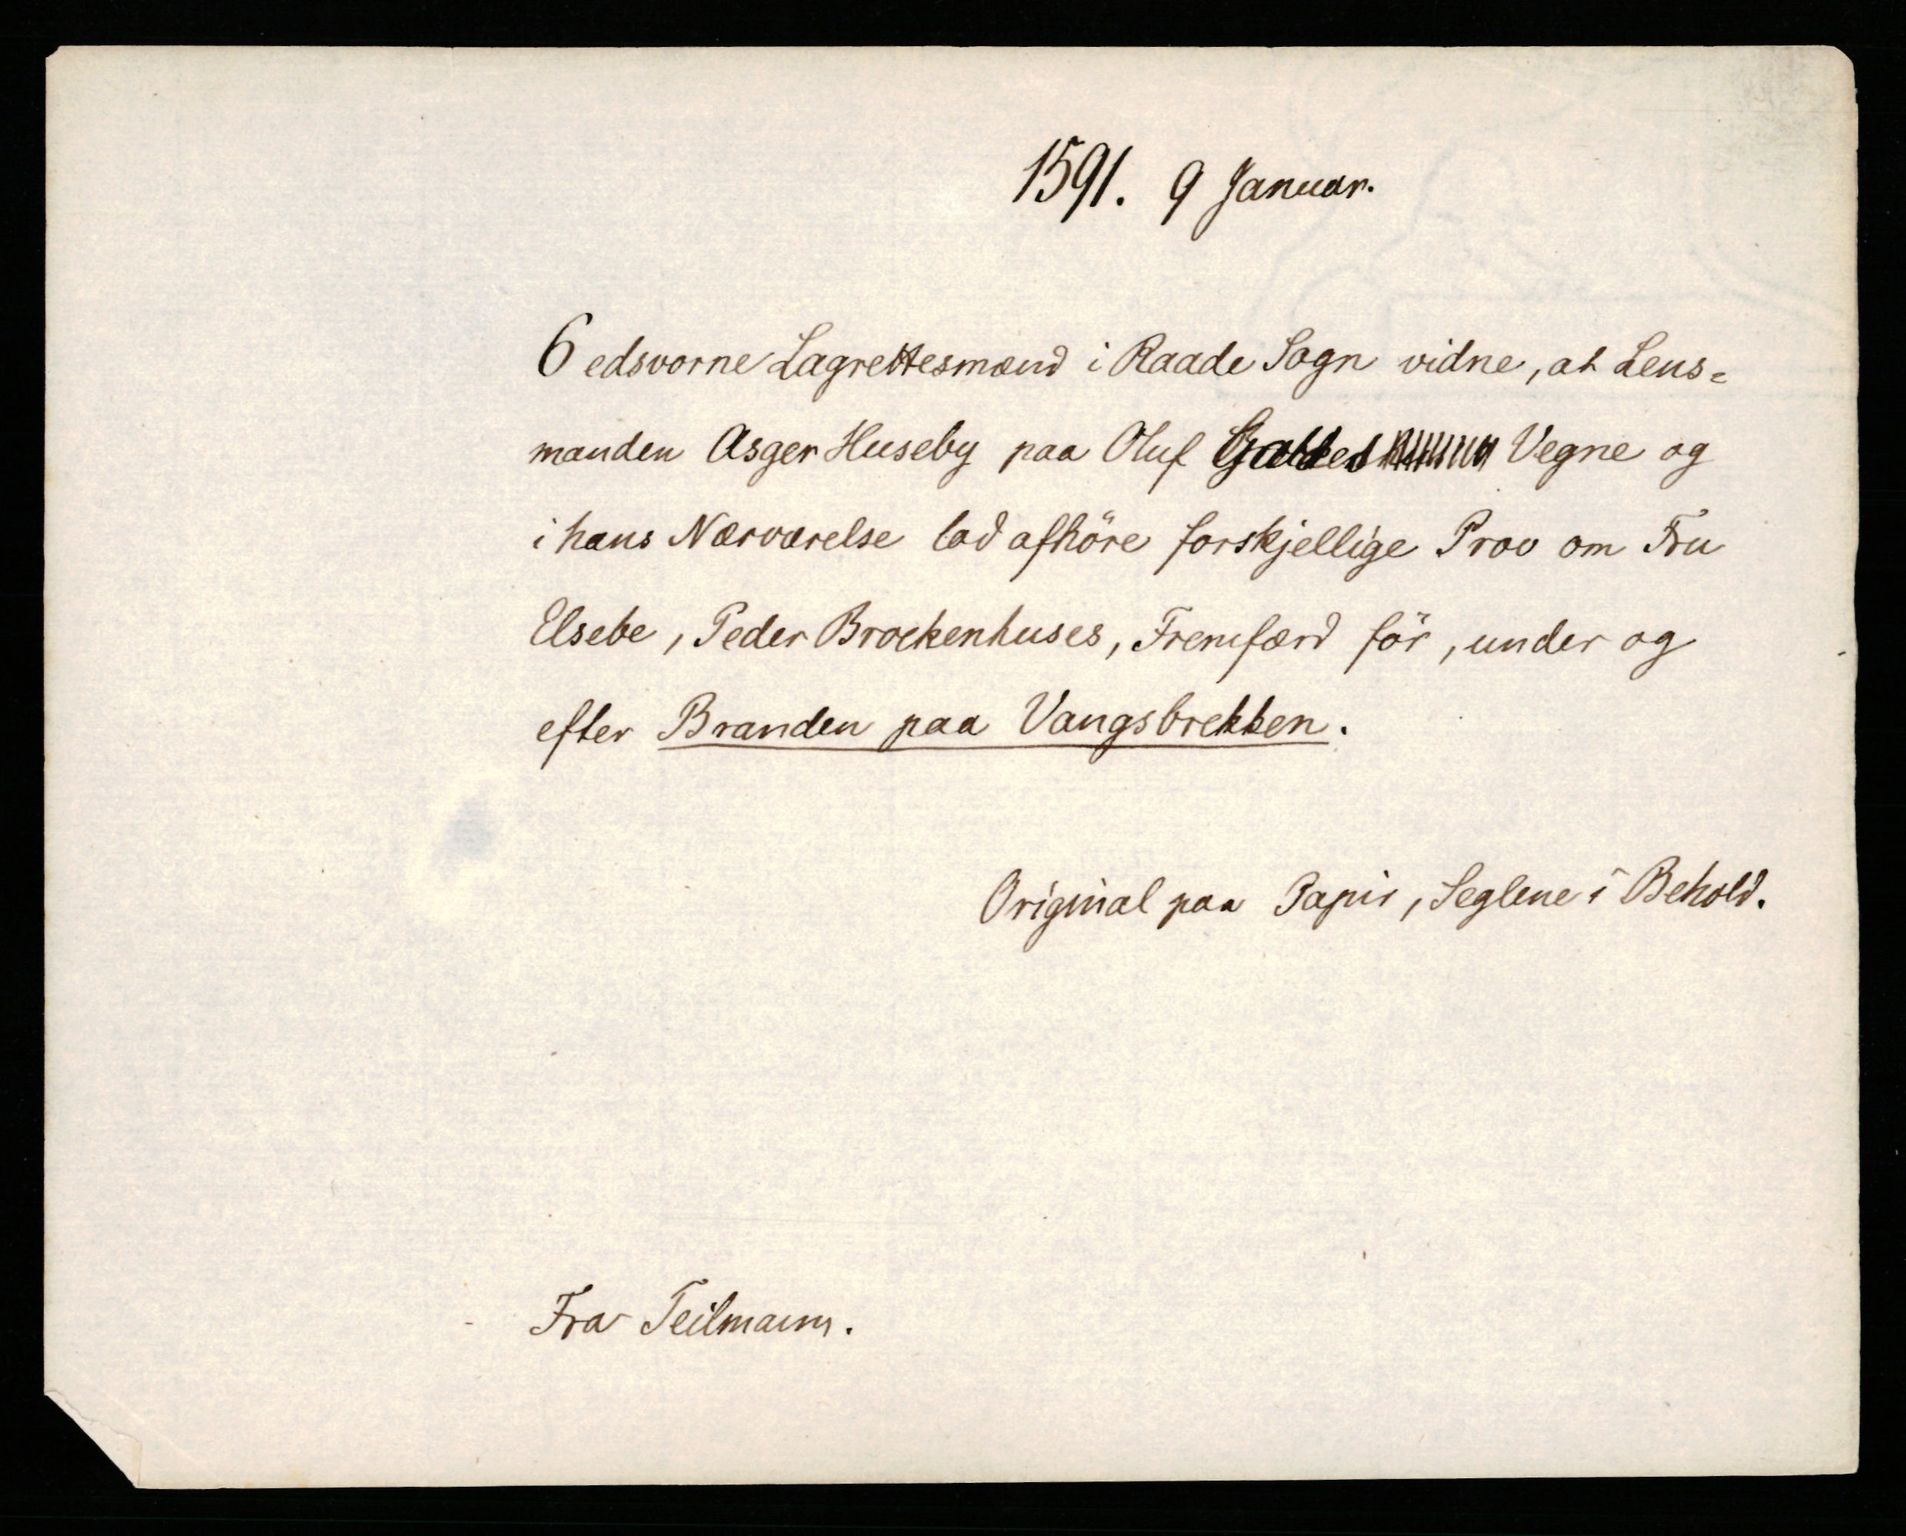 1591. 9 Januar.
6 edsvorne Lagrettesmænd i Raade Sogn vidne, at Lens-
manden Asger Huseby paa Oluf Galdes Vegne og
i hans Nærværelse lod afhöre forskjellige Prov om Fru
Elsebe, Peder Brockenhuses, Fremfærd för, under og
efter Branden paa Vangsbrekken.
Original paa Papir, Seglene i Behold.
Fra Teilmann.